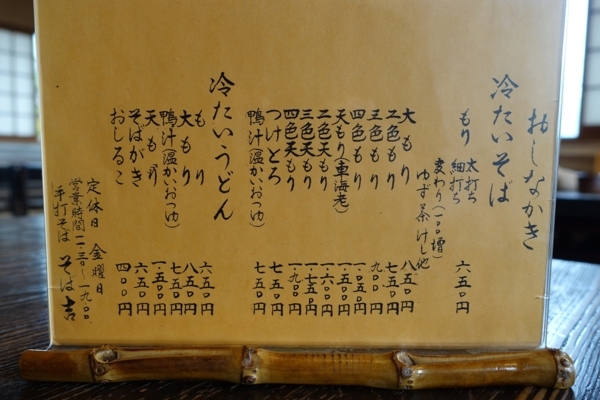 おしなかき
冷たいそば
もり 太打ち 細打ち 六五〇円
変わり(一〇〇増)
ゆず 茶 けし 他
大もり 八五〇円
二色もり 七五〇円
三色もり 九〇〇円
四色もり 一、〇五〇円
天もり(車海老) 一、五〇〇円
二色天もり 一、六〇〇円
三色天もり 一、七五〇円
四色天もり 一、九〇〇円
つけとろ 七五〇円
鴨汁(温かいおつゆ) 七五〇円
冷たいうどん
もり 六五〇円
大もり 八五〇円
鴨汁(温かいおつゆ) 七五〇円
天もり 一、五〇〇円
そばがき 六五〇円
おしるこ 四〇〇円
定休日 金曜日
営業時間 一一、三〇〜一九、〇〇
手打そば そば吉